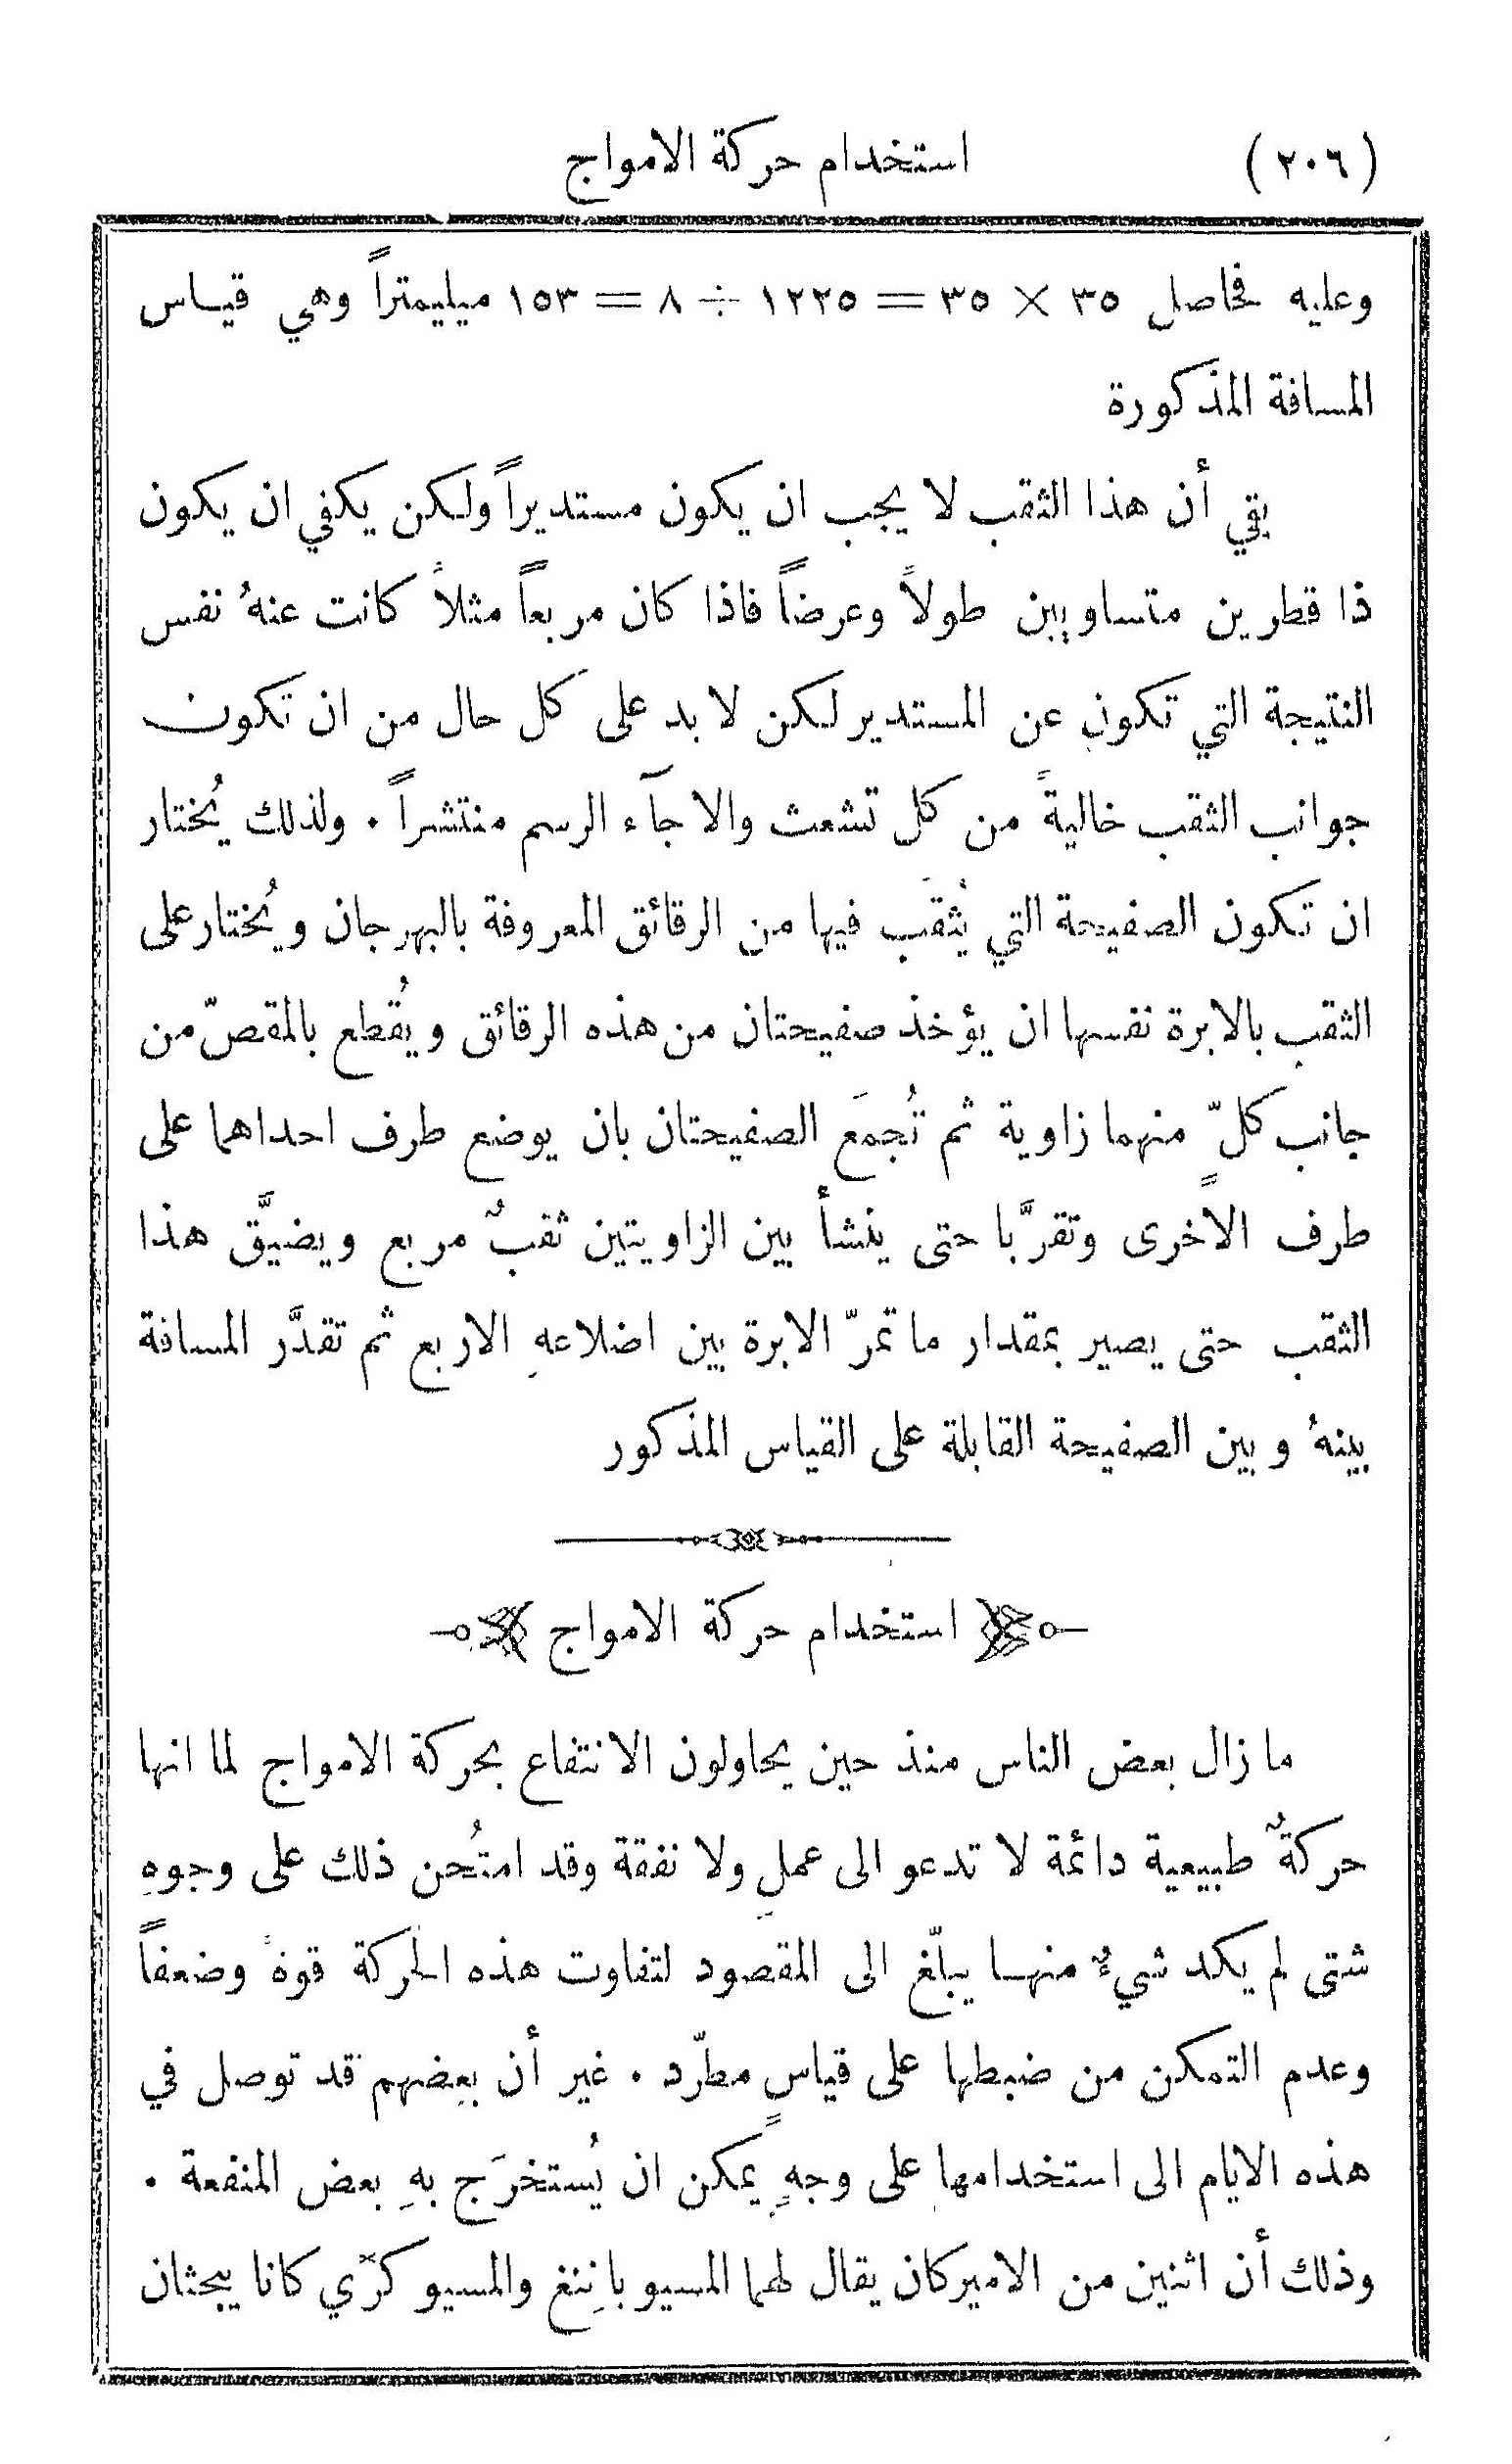 (٢٠٦) استخدام حركة الامواج
وعليه فحاصل ٣٥ × ٣٥ = ١٢٢٥ ÷ ٨ = ١٥٣ ميليمتراً وهي قياس
المسافة المذكورة
بقي أن هذا الثقب لا يجب ان يكون مستديراً ولكن يكفي ان يكون
ذا قطرين متساويين طولاً وعرضاً فاذا كان مربعاً مثلاً كانت عنهُ نفس
النتيجة التي تكون عن المستدير لكن لا بد على كل حال من ان تكون
جوانب الثقب خاليةً من كل تشعث والا جآء الرسم منتشراً . ولذلك يُختار
ان تكون الصفيحة التي يُثقَب فيها من الرقائق المعروفة بالبهرجان ويُختار على
الثقب بالابرة نفسها ان يؤخذ صفيحتان من هذه الرقائق ويُقطع بالمقصّ من
جانب كلّ منهما زاوية ثم تُجمَع الصفيحتان بان يوضع طرف احداهما على
طرف الاخرى وتقرَّبا حتى ينشأ بين الزاويتين ثقبٌ مربع ويضيَّق هذا
الثقب حتى يصير بمقدار ما تمرّ الابرة بين اضلاعهِ الاربع ثم تقدَّر المسافة
بينهُ وبين الصفيحة القابلة على القياس المذكور
استخدام حركة الامواج
ما زال بعض الناس منذ حين يحاولون الانتفاع بحركة الامواج لما انها
حركةٌ طبيعية دائمة لا تدعو الى عملٍ ولا نفقة وقد امتُحن ذلك على وجوهٍ
شتى لم يكد شيءٌ منها يبلّغ الى المقصود لتفاوت هذه الحركة قوةً وضعفاً
وعدم التمكن من ضبطها على قياسٍ مطّرد . غير أن بعضهم قد توصل في
هذه الايام الى استخدامها على وجهٍ يمكن ان يُستخرَج بهِ بعض المنفعة .
وذلك أن اثنين من الاميركان يقال لهما المسيو باننغ والمسيو كرّي كانا يبحثان